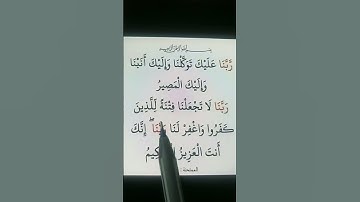 بسم الله الرحمن الرحيم
رَّبَّنَا عَلَيْكَ تَوَكَّلْنَا وَإِلَيْكَ أَنَبْنَا
وَإِلَيْكَ الْمَصِيرُ
رَبَّنَا لَا تَجْعَلْنَا فِتْنَةً لِّلَّذِينَ
كَفَرُوا وَاغْفِرْ لَنَا رَبَّنَا ۖ إِنَّكَ
أَنتَ الْعَزِيزُ الْحَكِيمُ
الممتحنة